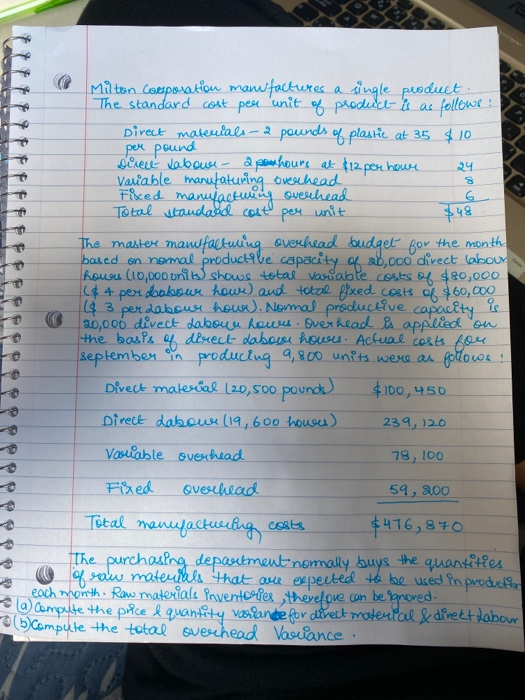 Milton Coorporation manufactures a single product.
The standard cost per unit of product is as follows:
Direct materials - 2 pounds of plastic at 35 $ 10
per pound
Direct labour - 2 hours at $12 per hour 24
Variable manufaturing overhead 8
Fixed manufactuing overhead 6
Total standard cost per unit $48
The master manufactuing overhead budget for the month
based on normal productive capacity of 20,000 direct labour
hours (10,000 units) shows total variable costs of $80,000
($ 4 per labour hour) and total fixed costs of $60,000
($ 3 per labour hour). Normal productive capacity is
20,000 direct labour hours. Overhead is applied on
the basis of direct labour hours. Actual costs for
september in producing 9,800 units were as follows:
Direct material (20,500 pounds) $100,450
Direct labour (19,600 hours) 239,120
Variable overhead 78,100
Fixed overhead 59,200
Total manufactuering costs $476,870
The purchasing department normally buys the quantities
of raw materials that are expected to be used in production
each month. Raw materials inventories, therefore can be ignored.
(a) Compute the price & quantity variance for direct material & direct labour
(b) Compute the total overhead Variance.